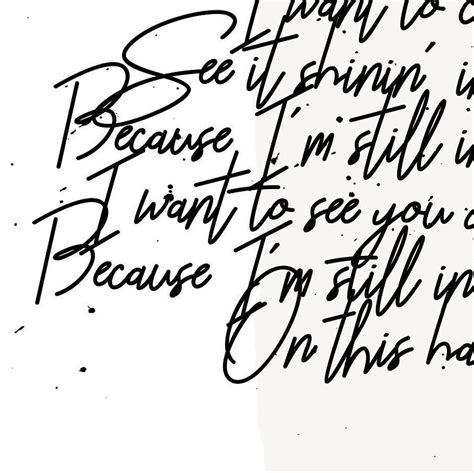 I want to
See it shinin'
Because I'm still
I want to see you
Because I'm still in
On this